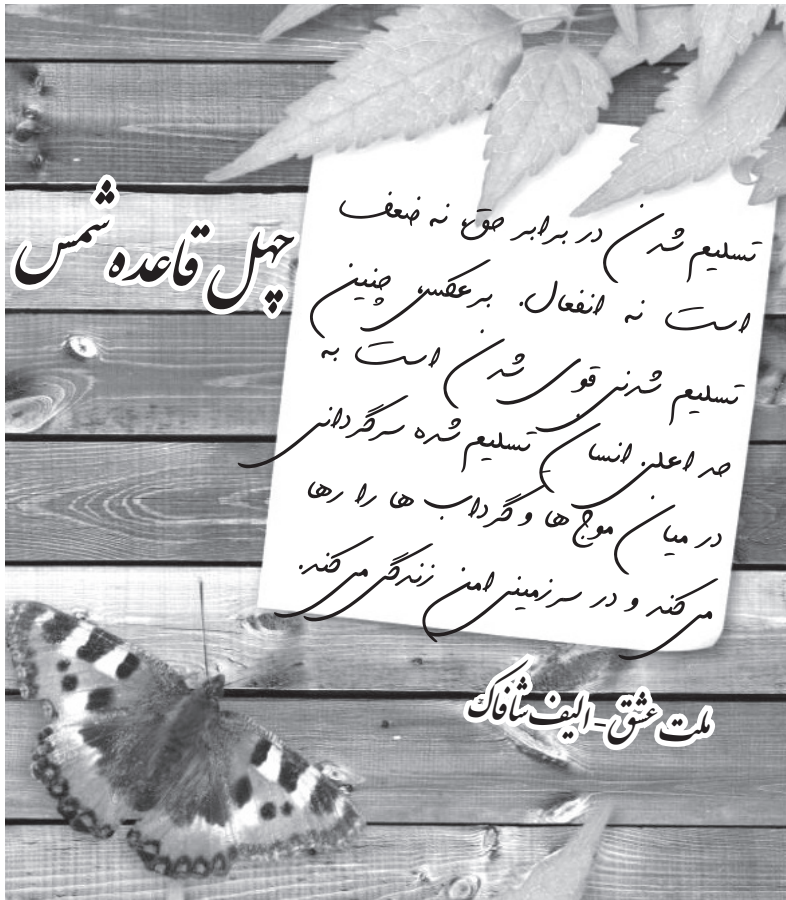 چهل قاعده شمس
تسلیم شدن در برابر حق، نه ضعف
است نه انفعال. برعکس، چنین
تسلیم شدنی قوی شدن است به
حد اعلی. انسان تسلیم شده سرگردانی
در میان موج ها و گرداب ها را رها
می کند و در سرزمینی امن زندگی می کند.
ملت عشق - الیف شافاک